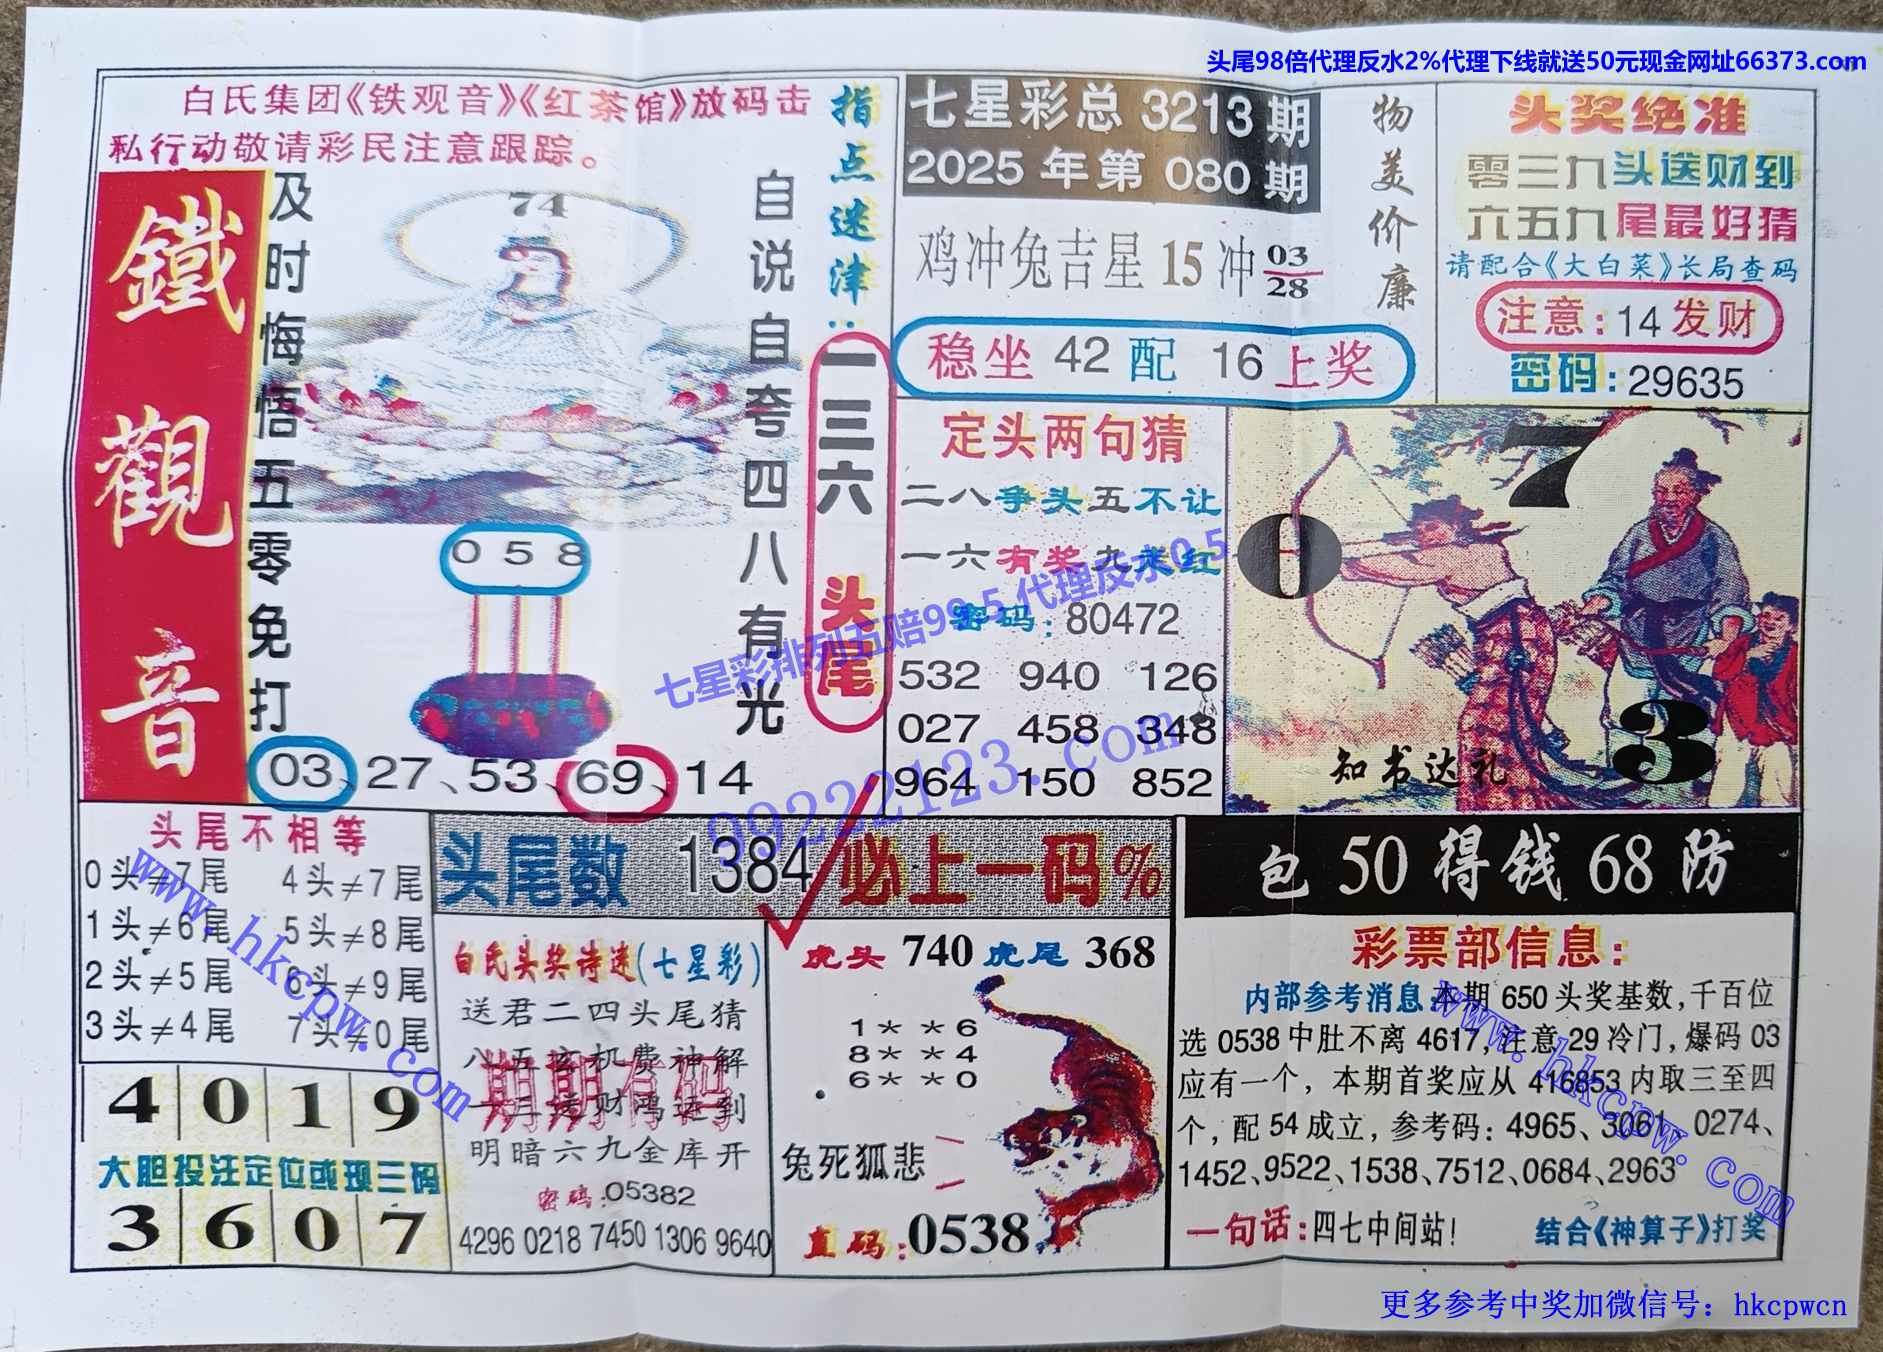 头尾98倍代理反水2%代理下线就送50元现金网址66373.com
白氏集团《铁观音》《红茶馆》放码击
私行动敬请彩民注意跟踪。
鐵觀音
及时悔悟五零免打
74
自说自夸四八有光
058
03、27、53、69、14
指点迷津:
一三六 头尾
七星彩总 3213期
2025年第 080期
鸡冲兔吉星 15 冲 03
28
稳坐 42 配 16 上奖
物美价廉
头奖绝准
零三九头送财到
六五九尾最好猜
请配合《大白菜》长局查码
注意:14发财
密码:29635
定头两句猜
二八争头五不让
一六有奖九来红
密码:80472
532 940 126
027 458 348
964 150 852
7
0
3
知书达礼
七星彩排列五赔99.5代理反水0.5
99222123.com
头尾不相等
0头≠7尾 4头≠7尾
1头≠6尾 5头≠8尾
2头≠5尾 6头≠9尾
3头≠4尾 7头≠0尾
www.hkcpw.com
4 0 1 9
大胆投注定位或现三码
3 6 0 7
头尾数 1384 必上一码%
白氏头奖诗迷(七星彩)
送君二四头尾猜
八五玄机费神解
一三送财鸿运到
明暗六九金库开
期期有码
密码:05382
4296 0218 7450 1306 9640
虎头 740 虎尾 368
1**6
8**4
6**0
兔死狐悲
直码:0538
包 50 得钱 68 防
彩票部信息:
内部参考消息:本期650头奖基数,千百位
选0538中肚不离4617,注意29冷门,爆码03
应有一个,本期首奖应从416853内取三至四
个,配54成立,参考码:4965、3061、0274、
1452、9522、1538、7512、0684、2963
www.hkcpw.com
一句话:四七中间站!
结合《神算子》打奖
更多参考中奖加微信号:hkcpwcn